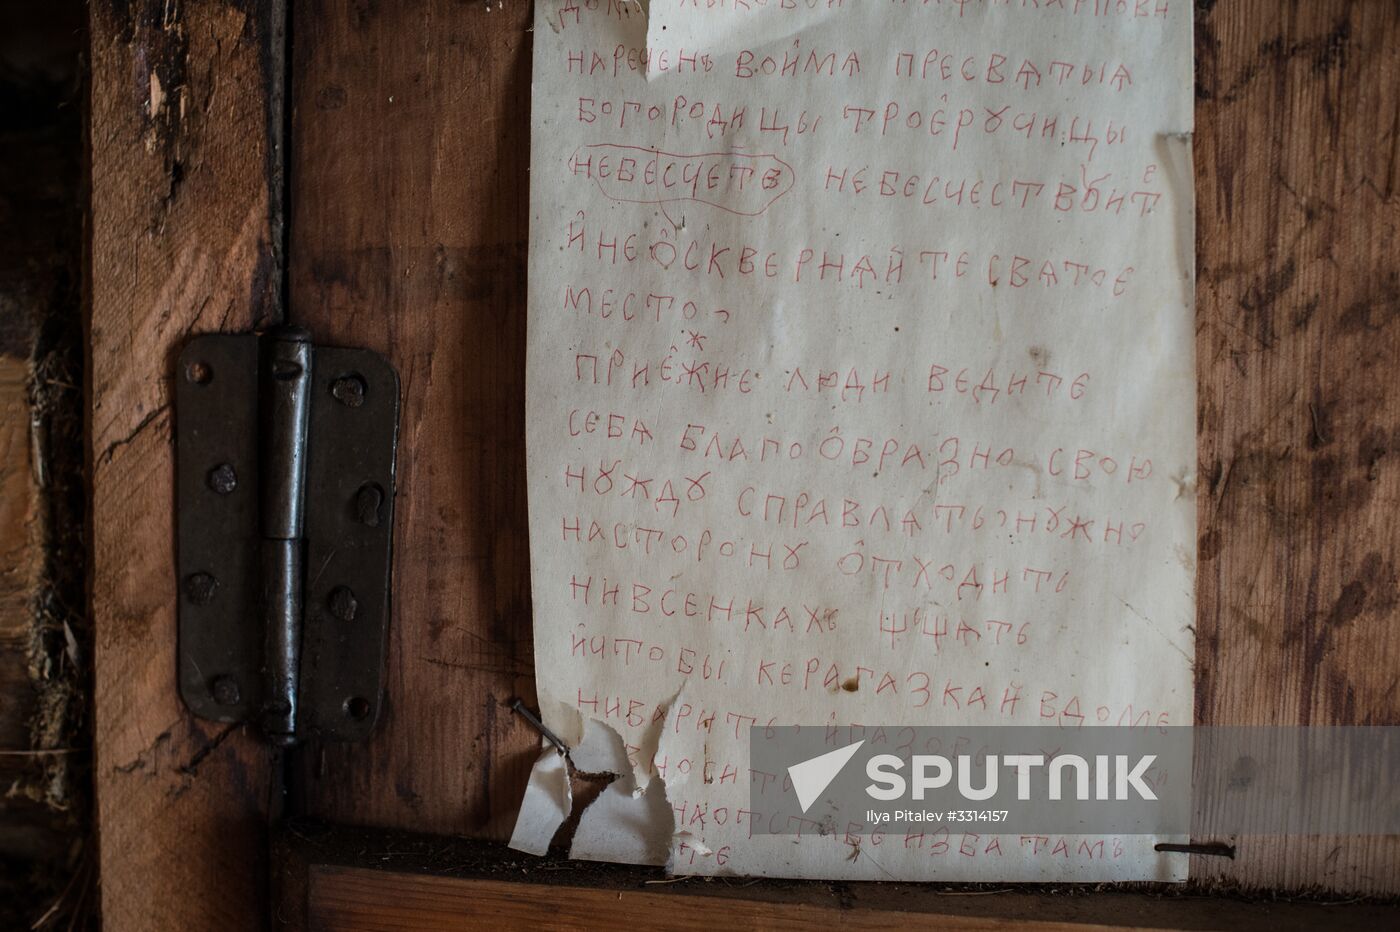 нареченъ воима пресватыа
богородицы троеручицы
небесчетв небесчествоит
и не оскверняйте сватое
место,
ж
приежие люди ведите
себа благообразно свою
нꙋждꙋ справлать, нꙋжно
насторонꙋ отходить
нивсенкахъ
ичтобы керагазкай вдоме
ниварить,
вносить
наотставе изба тамъ
SPUTNIK
Ilya Pitalev #3314157